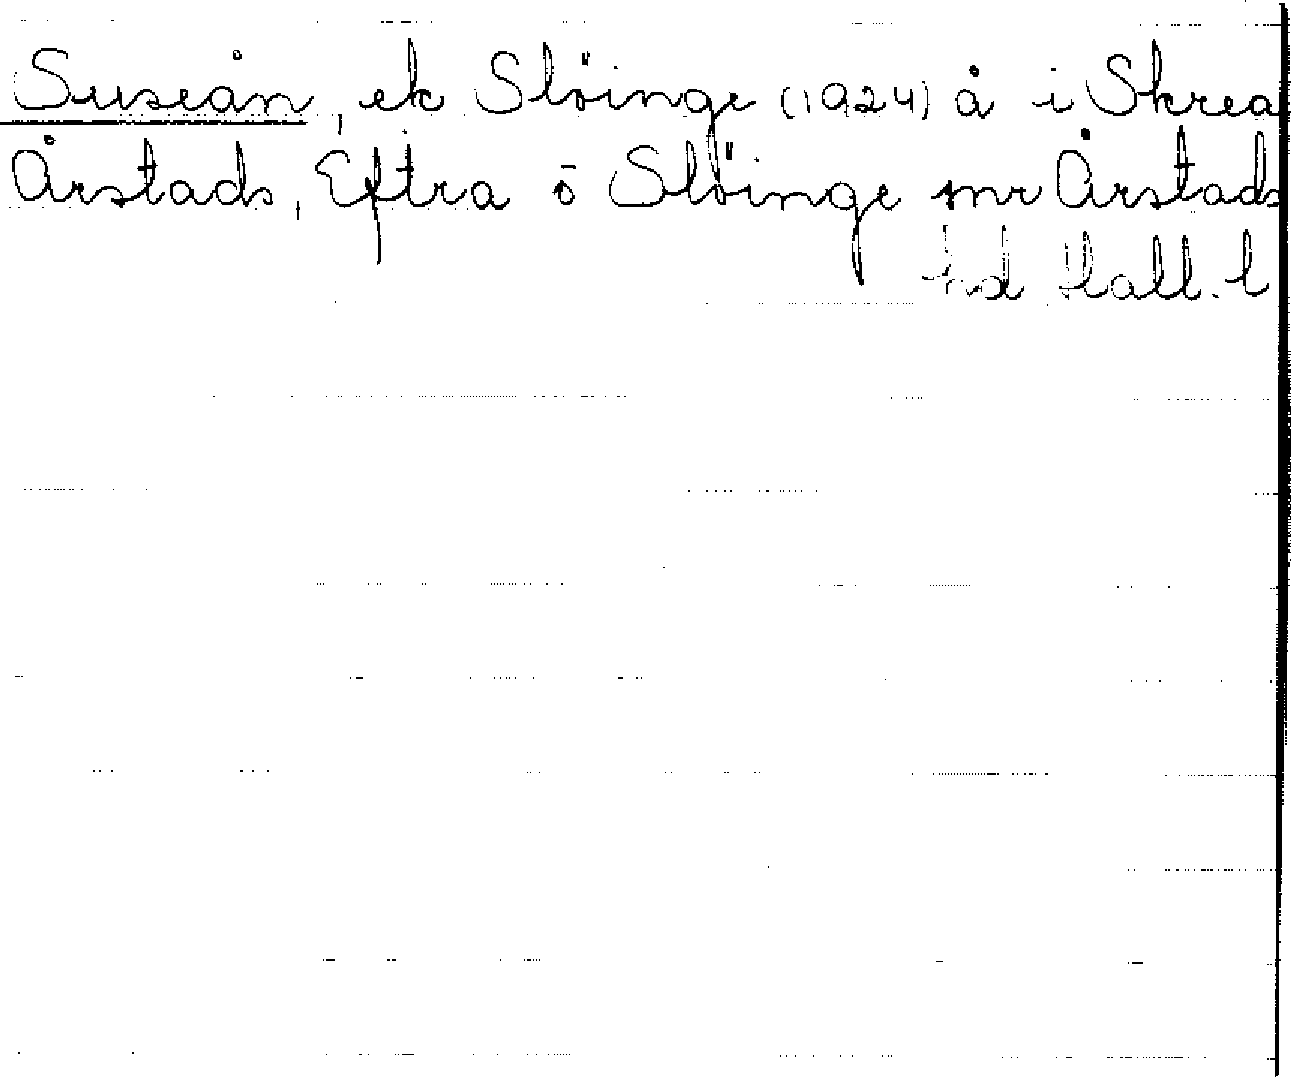 Suseån, ek Slöinge (1924) å i Skrea
Årstads, Eftra o Slöinge snr Årstads
hd Hall. l